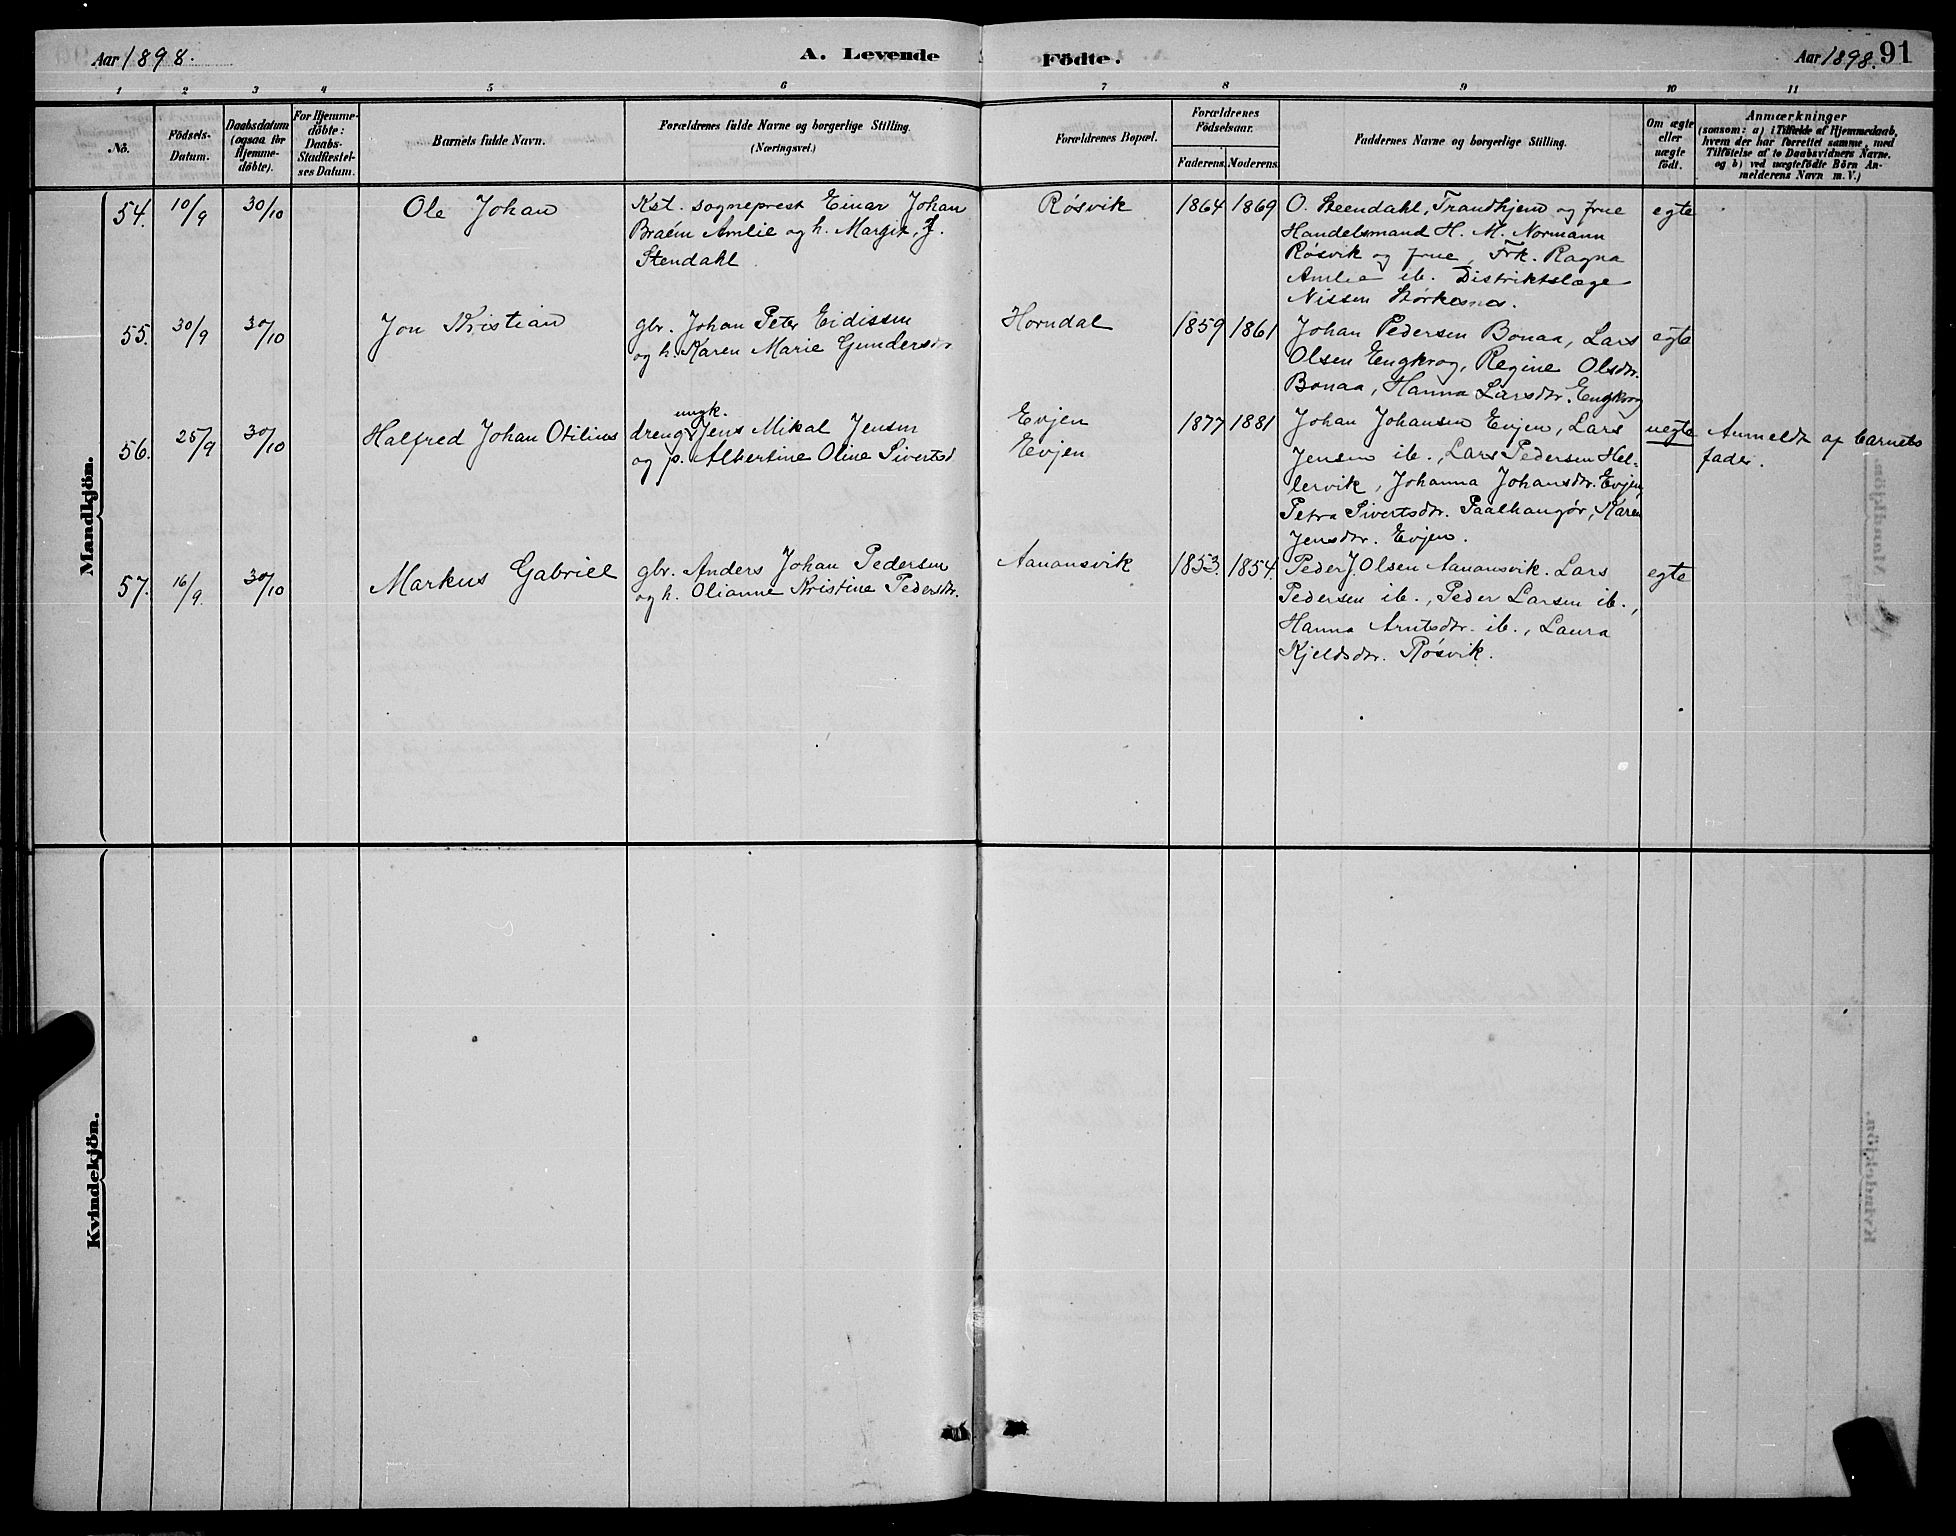 Aar 1898.
A. Levende Fødte.
Aar 1898. 91
1 2 3 4 5 6 7 8 9 10 11
No.
Födsels-
Datum.
Daabsdatum
(ogsaa for
Hjemme-
döbte).
For Hjemme-
döbte:
Daabs-
Stadfæstel-
ses Datum.
Barnets fulde Navn.
Forældrenes fulde Navne og borgerlige Stilling.
(Næringsvei.)
Forældrenes Bopæl.
Forældrenes
Födselsaar.
Faderens. Moderens.
Faddernes Navne og borgerlige Stilling.
Om ægte
eller
uægte
födt.
Anmærkninger
(saasom: a) i Tilfælde af Hjemmedaab,
hvem der har forrettet samme, med
Tilföielse af to Daabsvidners Navne,
og b) ved uægtefödte Börn An-
melderens Navn m. V.)
Mandkjön.
54. 10/9 30/10 Ole Johan
Kst. sogneprest Einar Johan
Braém Amlie og h. Margit J.
Stendahl.
Røsvik 1864 1869
O. Steendahl, Trondhjem og frue
Handelsmand H. M. Normann
Røsvik og frue, Frk. Ragna
Amlie ib. Distriktslæge
Nissen Størkesnes.
egte
55. 30/9 30/10 Jon Kristian
gbr. Johan Peter Eidissen
og h. Karen Marie Gundersdr
Horndal 1859 1861
Johan Pedersen Bonaa, Lars
Olsen Engkrog, Regine Olsdr.
Bonaa, Hanna Larsdr. Engkrog
egte
56. 25/9 30/10 Halfred Johan Otilius
ungk.
dreng Jens Mikal Jensen
og p. Albertine Oline Sivertsd
Evjen
Evjen
1877 1881
Johan Johansen Evjen, Lars
Jensen ib., Lars Pedersen Hel-
lervik, Johanna Johansdr. Evjen,
Petra Sivertsdr. Paalhaugør, Karen
Jensdr. Evjen.
uegte
Anmeldt af barnets
fader.
57. 16/9. 30/10 Markus Gabriel
gbr. Anders Johan Pedersen
og h. Olianne Kristine Pedersdr.
Aanansvik 1853. 1854.
Peder J. Olsen Aanansvik. Lars
Pedersen ib., Peder Larsen ib.,
Hanna Arntsdr. ib., Laura
Kjeldsdr. Røsvik.
egte
Kvindekjön.